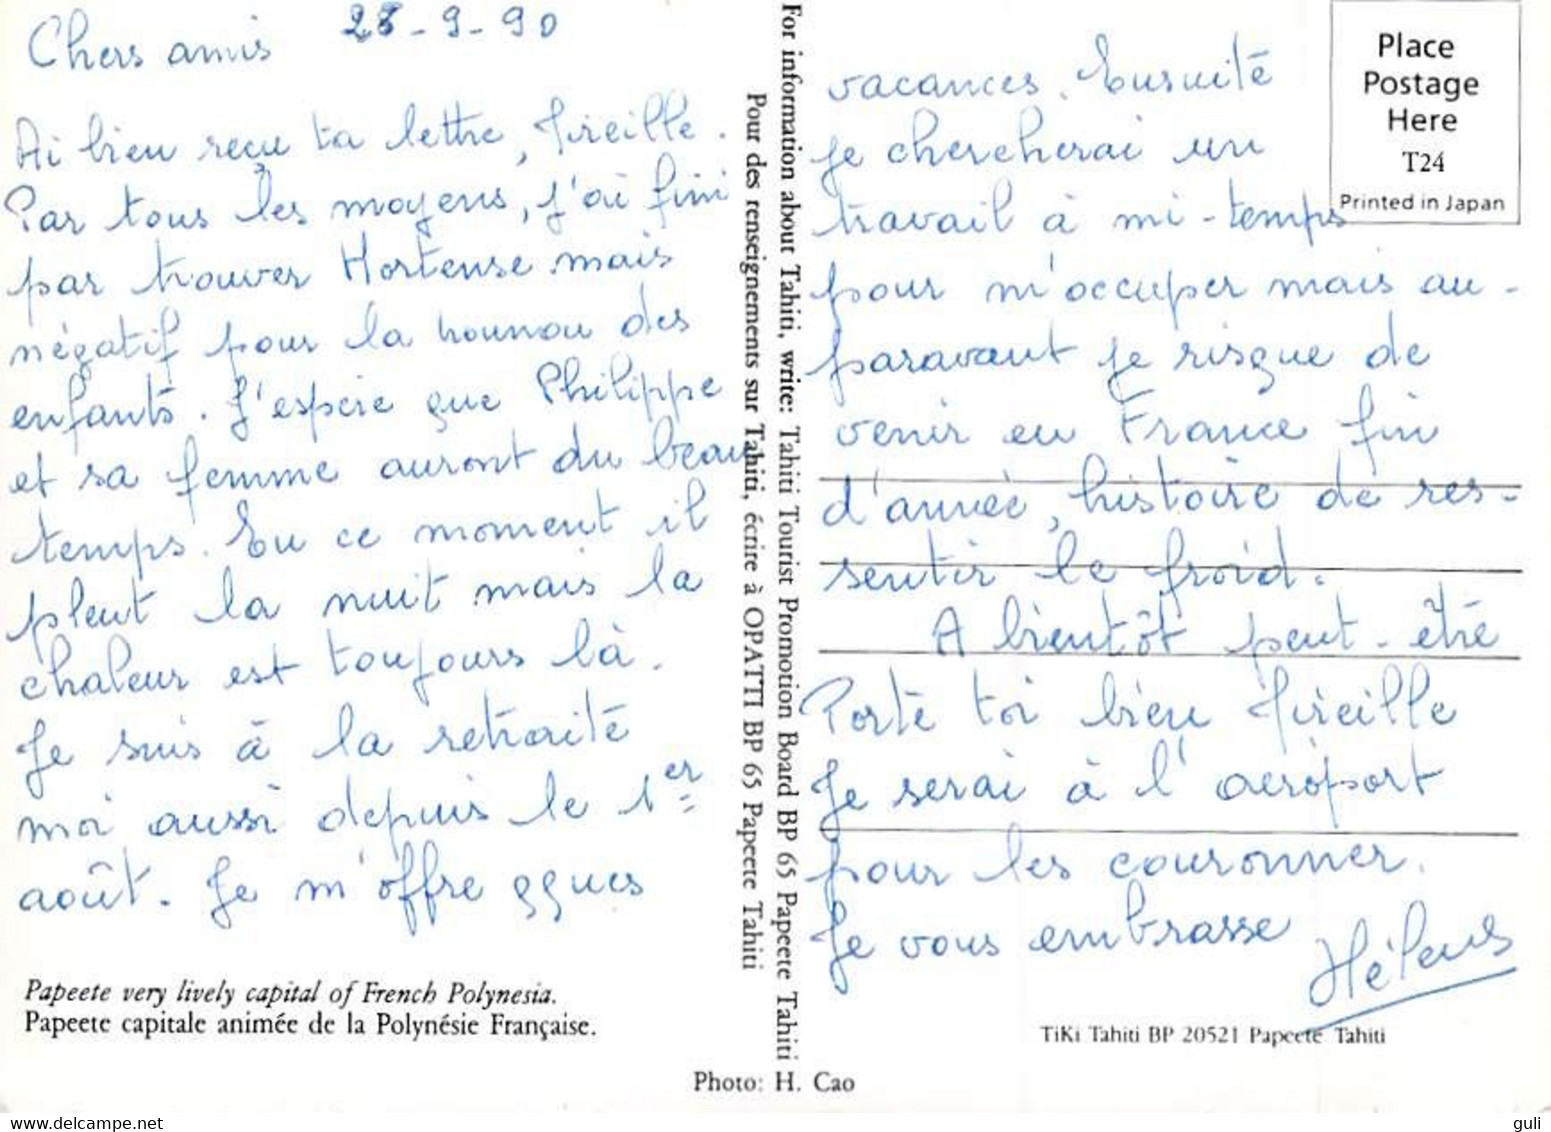 Chers amis 28-9-90
Ai bien reçu ta lettre, Mireille.
Par tous les moyens, j'ai fini
par trouver Hortense mais
négatif pour la nounou des
enfants. J'espère que Philippe
et sa femme auront du beau
temps. En ce moment il
pleut la nuit mais la
chaleur est toujours là.
Je suis à la retraite
moi aussi depuis le 1er
août. Je m'offre qques
Papeete very lively capital of French Polynesia.
Papeete capitale animée de la Polynésie Française.
For information about Tahiti, write: Tahiti Tourist Promotion Board BP 65 Papeete Tahiti
Pour des renseignements sur Tahiti, écrire à OPATTI BP 65 Papeete Tahiti
Photo: H. Cao
Place
Postage
Here
T24
Printed in Japan
vacances. Ensuite
je chercherai un
travail à mi-temps
pour m'occuper mais au-
paravant je risque de
venir en France fin
d'année, histoire de res-
sentir le froid.
A bientôt peut-être
Porte toi bien Mireille
Je serai à l'aéroport
pour les couronner.
Je vous embrasse
Hélène
TiKi Tahiti BP 20521 Papeete Tahiti
www.delcampe.net
guli